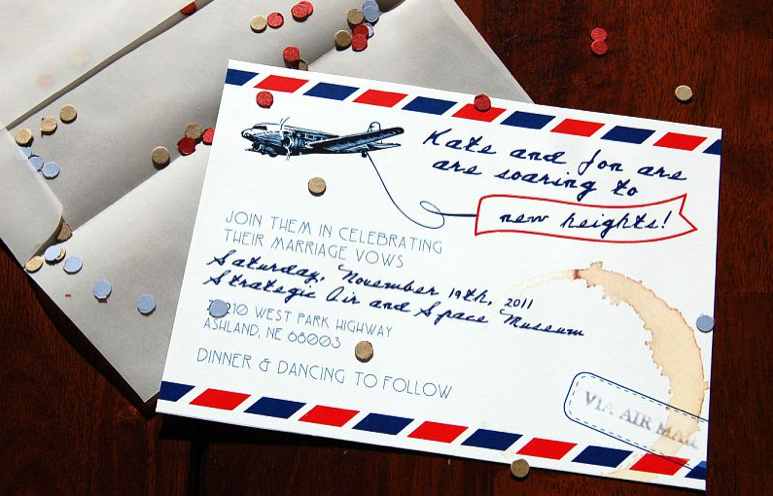 Kate and Jon are
are soaring to
new heights!
JOIN THEM IN CELEBRATING
THEIR MARRIAGE VOWS
Saturday, November 19th, 2011
Strategic Air and Space Museum
WEST PARK HIGHWAY
ASHLAND, NE 68003
DINNER & DANCING TO FOLLOW
VIA AIR MAIL